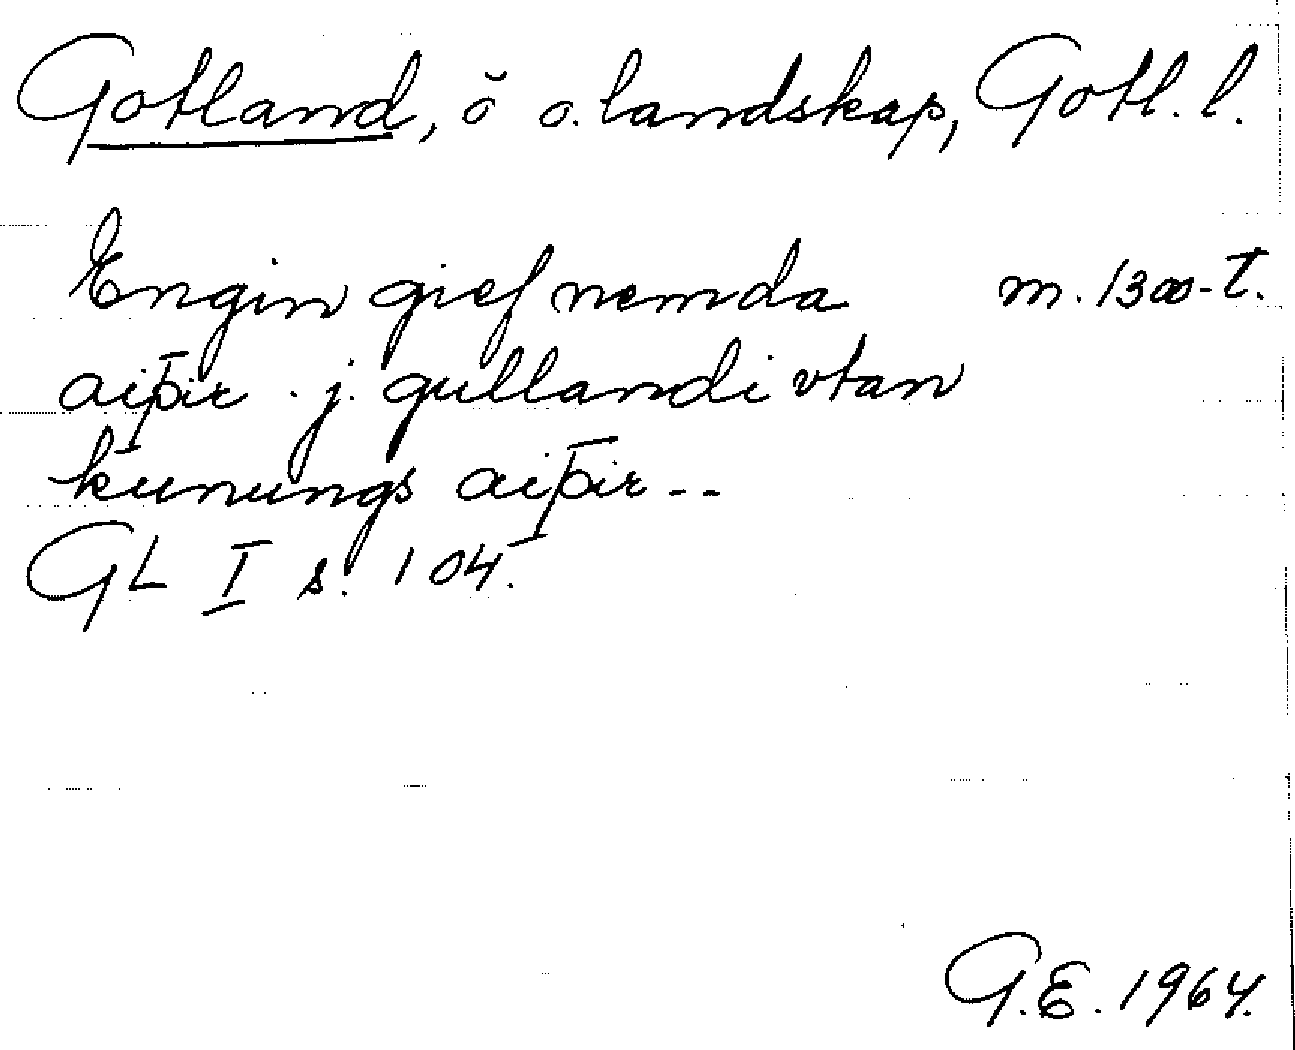 Gotland, ö o. landskap, Gotl. l.
Engin gief nemda m. 1300-t.
aiþir . j. gullandi vtan
kunungs aiþir - -
GL I s. 104.
G.E. 1964.